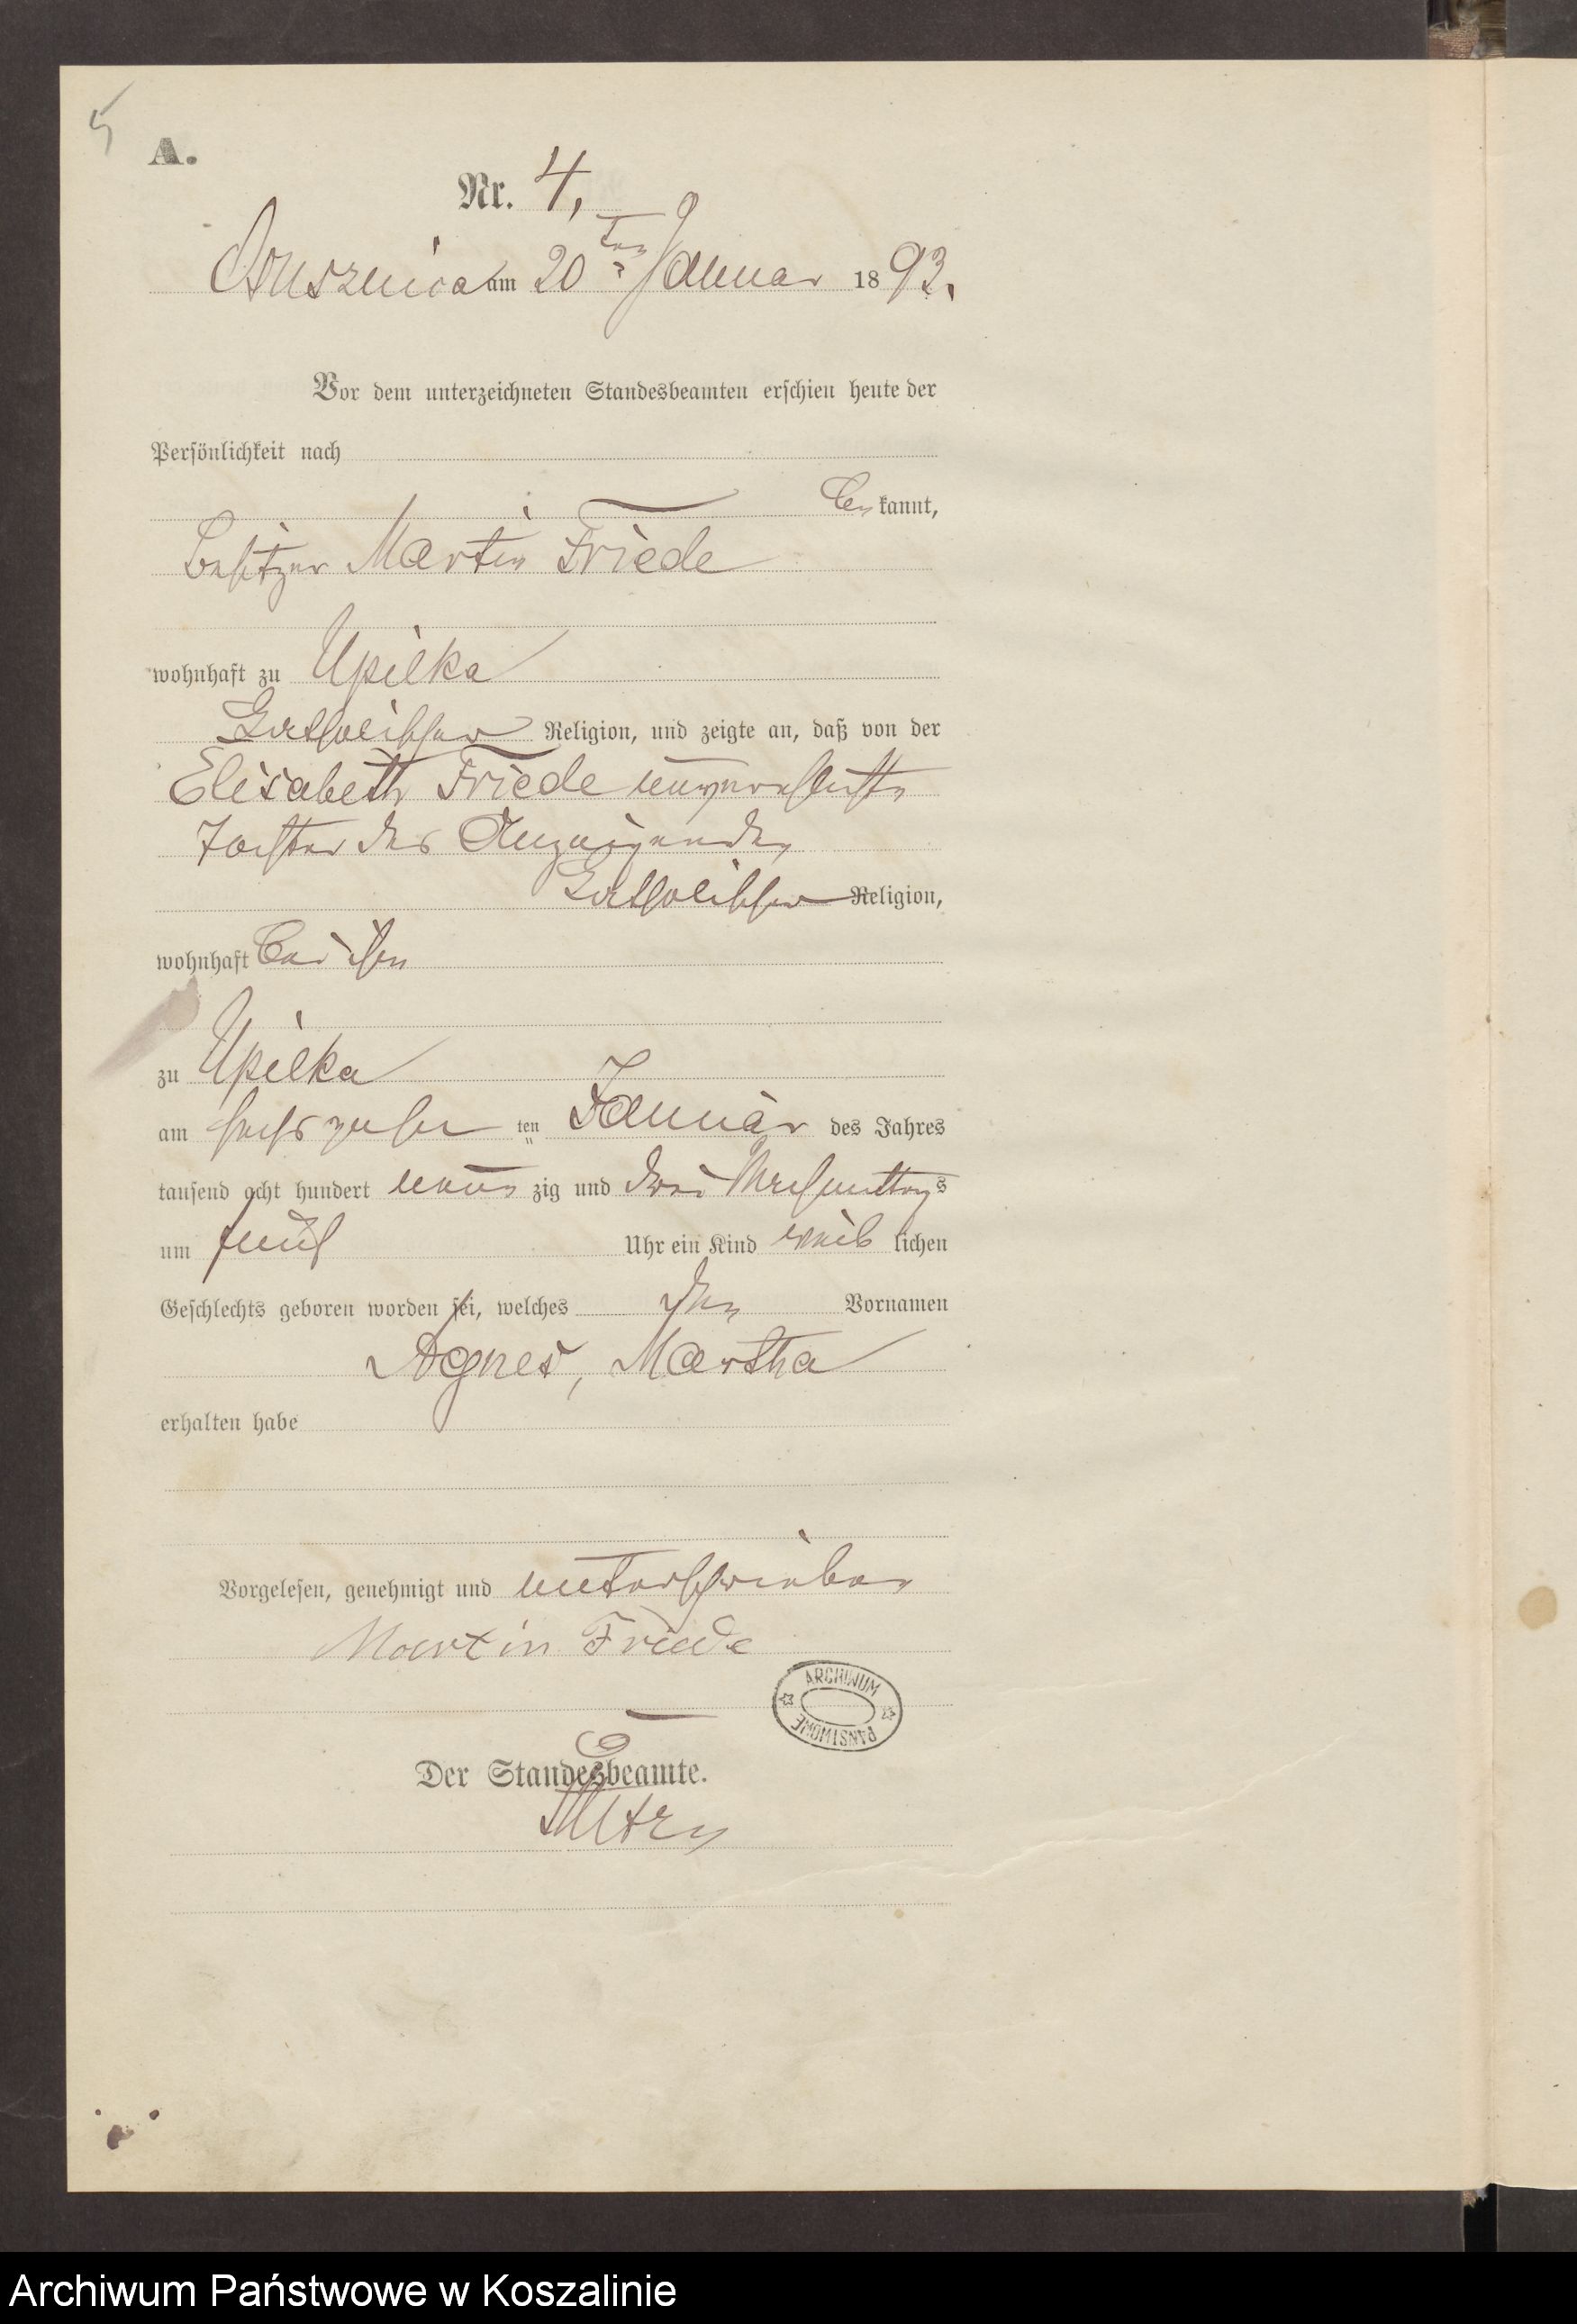 5
A.
Nr. 4,
Bruszenica am 20 ten Januar 1893.
Vor dem unterzeichneten Standesbeamten erschien heute der
Persönlichkeit nach
be kannt,
Besitzer Martin Friede
wohnhaft zu Upilka
katholischer Religion, und zeigte an, daß von der
Elisabeth Friede unverehelichte
Tochter des Anzeigenden
katholischer Religion,
wohnhaft bei ihm
zu Upilka
am sechszehn ten Januar des Jahres
tausend acht hundert neun zig und drei Nachmittags
um fünf Uhr ein Kind weib lichen
Geschlechts geboren worden sei, welches den Vornamen
Agnes, Martha
erhalten habe
Vorgelesen, genehmigt und unterschrieben
Martin Friede
ARCHIWUM PAŃSTWOWE
Der Standesbeamte.
Archiwum Państwowe w Koszalinie